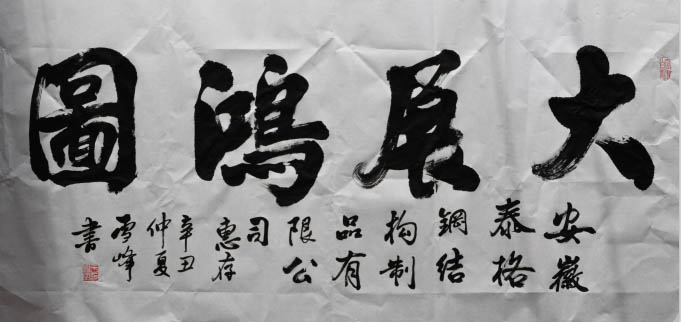 大展鴻圖
安徽
泰格
鋼結
构制
品有
限公
司
惠存
辛丑
仲夏
雪峰
書